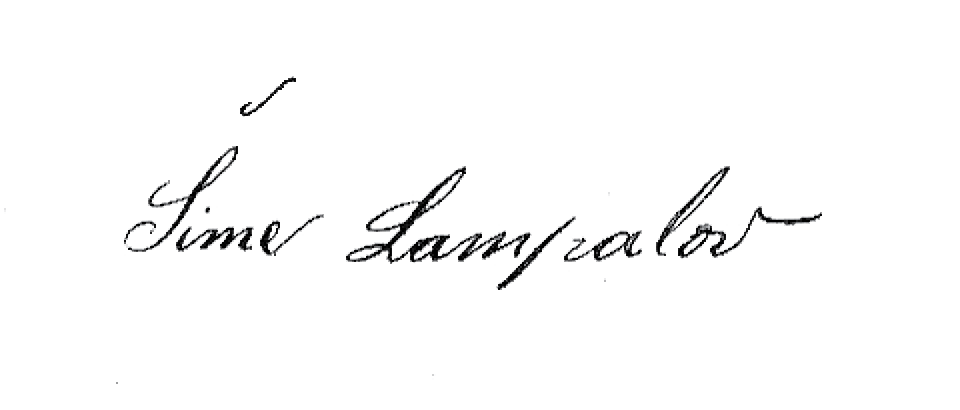 Šime Lampalov